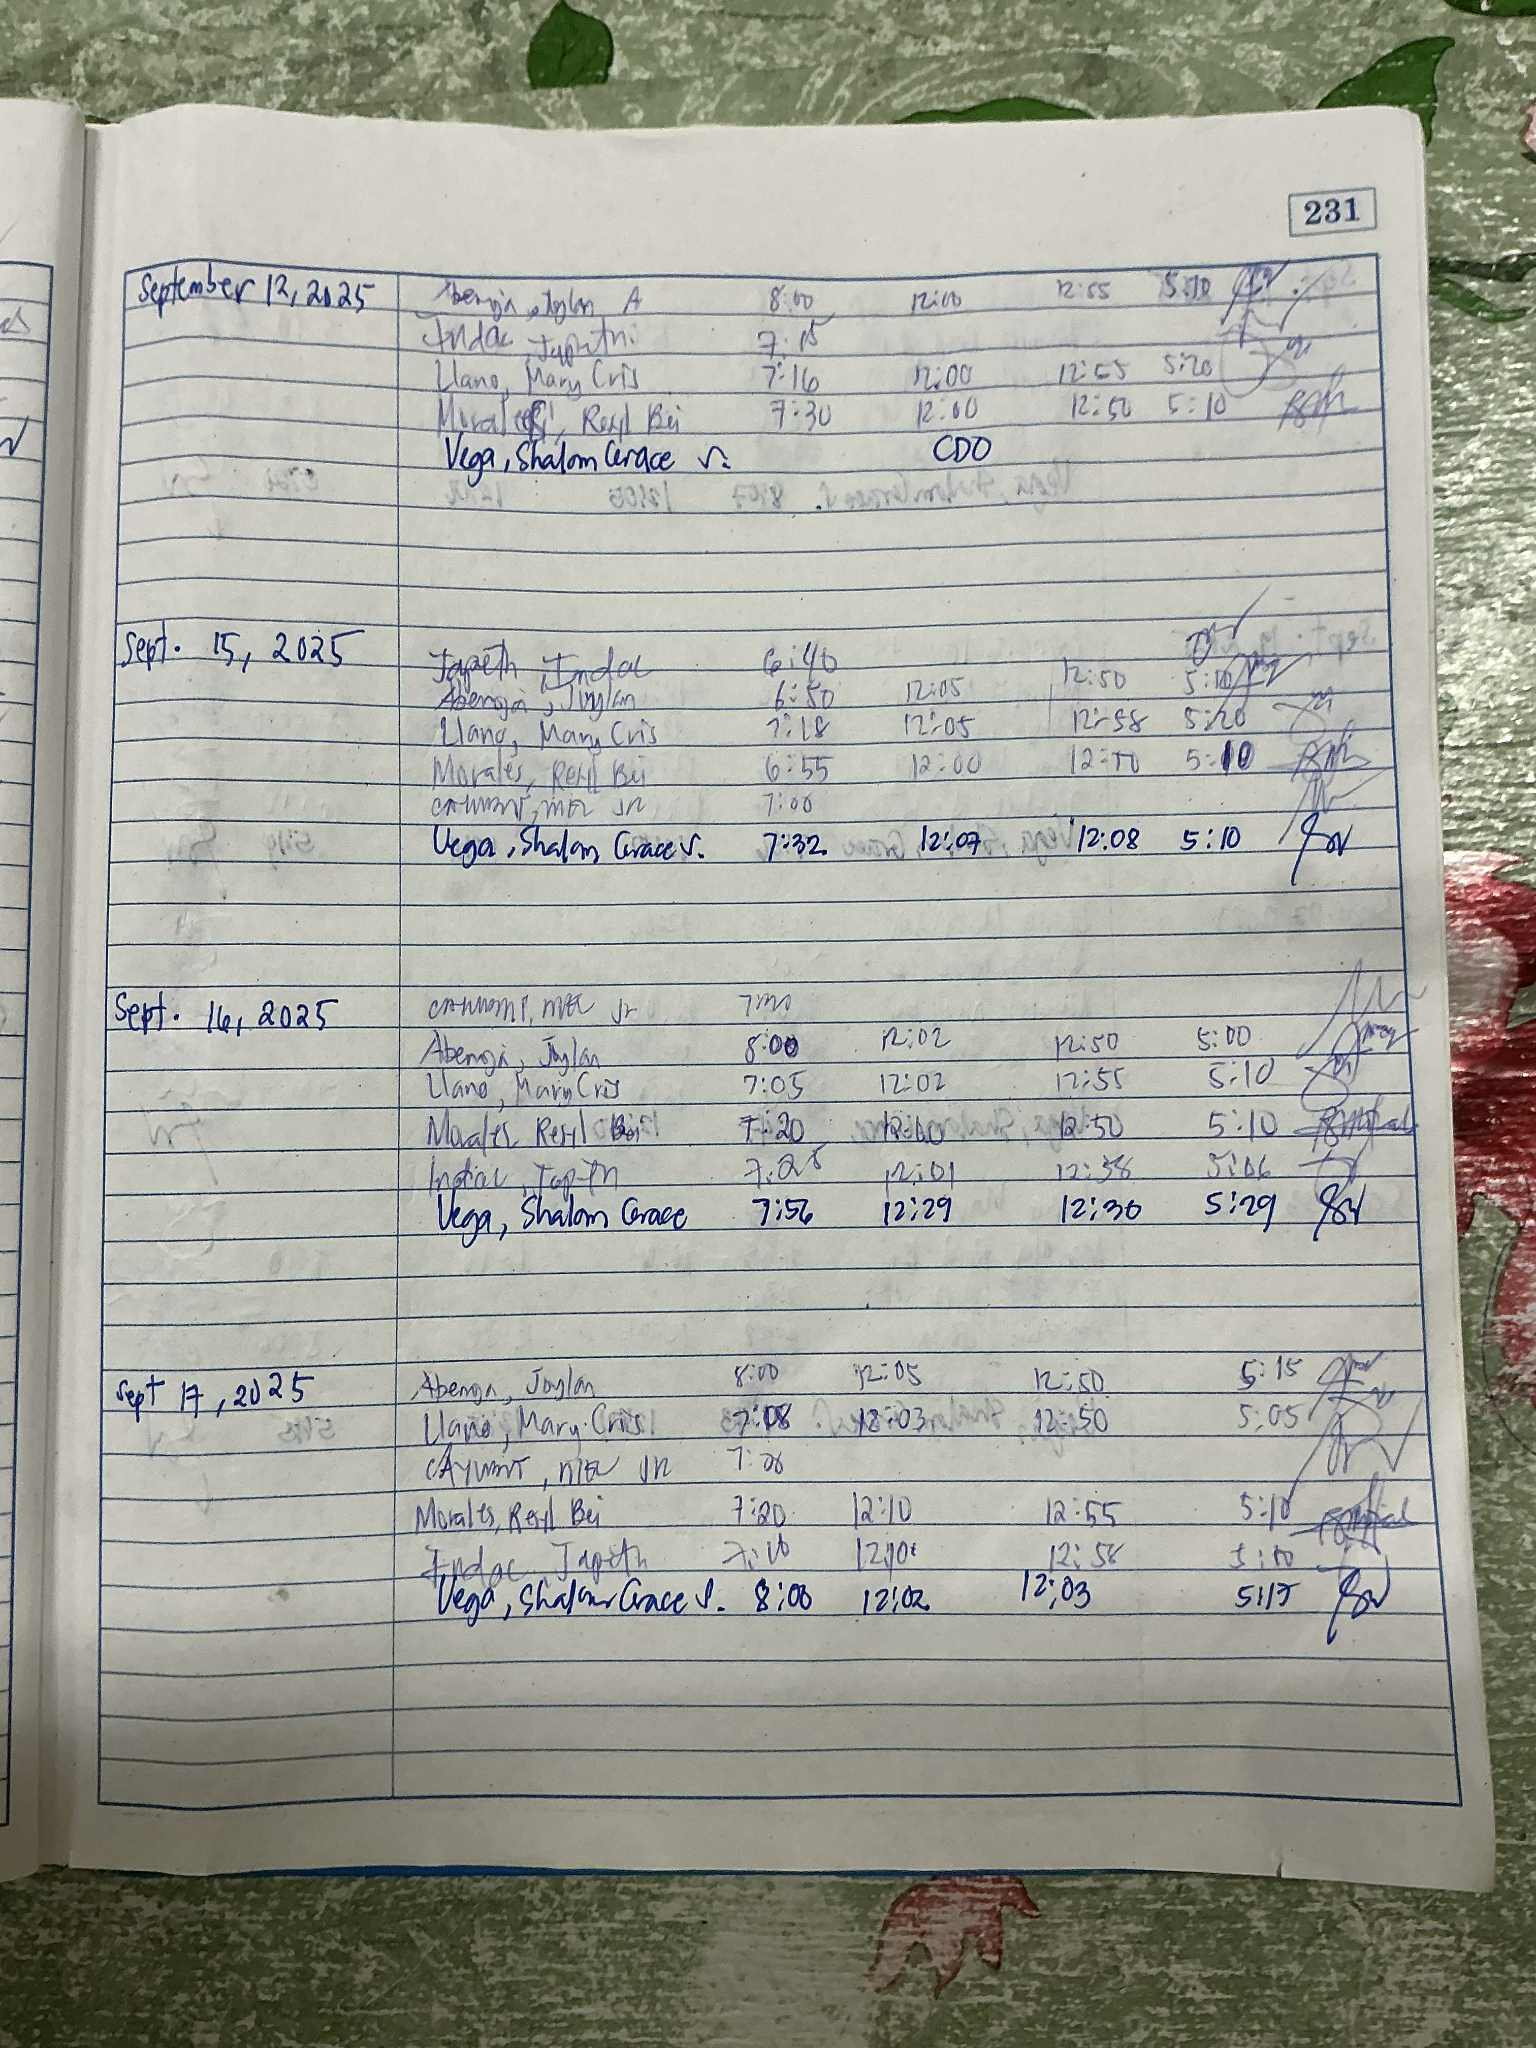 231
September 12, 2025 Abenoja, Joylan A 8:00 12:00 12:55 5:10
Indac, Japeth 7:15
Llano, Mary Cris 7:16 12:00 12:55 5:20
Morales, Resyl Bei 7:30 12:00 12:50 5:10
Vega, Shalom Grace S. CDO
Sept. 15, 2025 Japeth, Indac 6:40
Abenoja, Joylan 6:50 12:05 12:50 5:10
Llano, Mary Cris 7:18 12:05 12:58 5:20
Morales, Resyl Bei 6:55 12:00 12:50 5:10
JR 7:00
Vega, Shalom Grace S. 7:32 12:07 12:08 5:10
Sept. 16, 2025 Jr
Abenoja, Joylan 8:00 12:02 12:50 5:00
Llano, Mary Cris 7:05 12:02 12:55 5:10
Morales Resyl Bei 7:20 12:00 12:50 5:10
Indac, Japeth 7:25 12:01 12:58 5:06
Vega, Shalom Grace 7:56 12:29 12:30 5:29
Sept 17, 2025 Abenoja, Joylan 8:00 12:05 12:50 5:15
Llano, Mary Cris 7:08 12:03 12:50 5:05
JR
Morales, Resyl Bei 7:20 12:10 12:55 5:10
Indac, Japeth 12:58
Vega, Shalom Grace S. 8:00 12:02 12:03 5:17